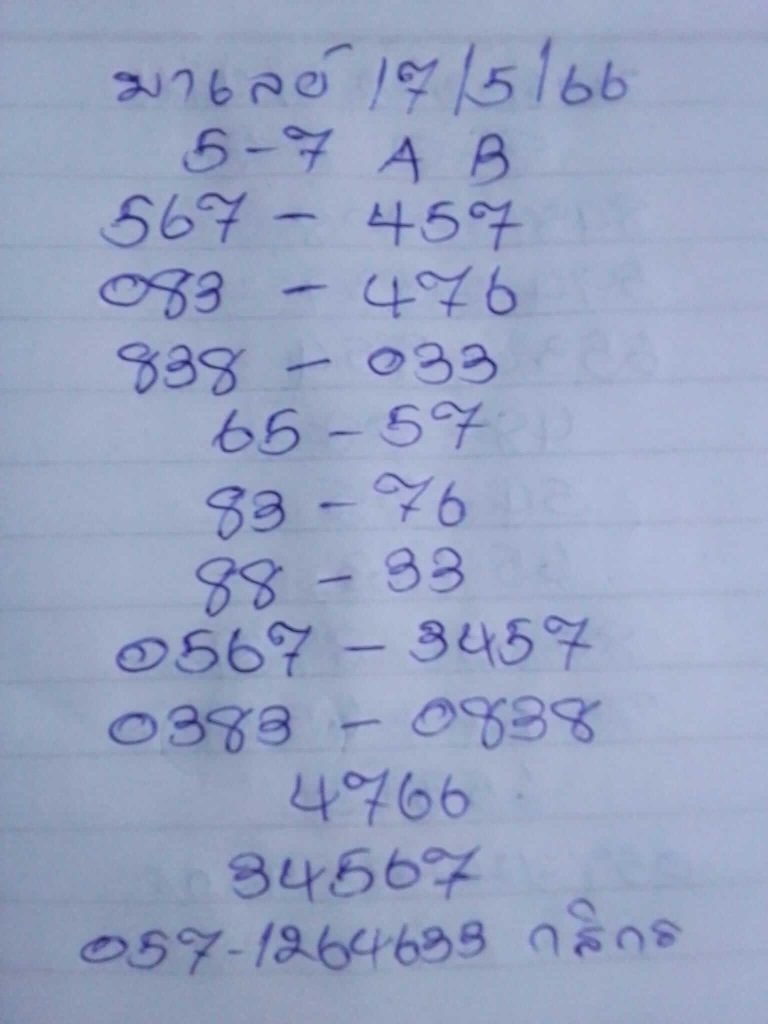 มาเลย์ 17/5/66
5-7 A B
567 - 457
083 - 476
838 - 033
65 - 57
83 - 76
88 - 33
0567 - 3457
0383 - 0838
4766
34567
057-1264633 กสิกร